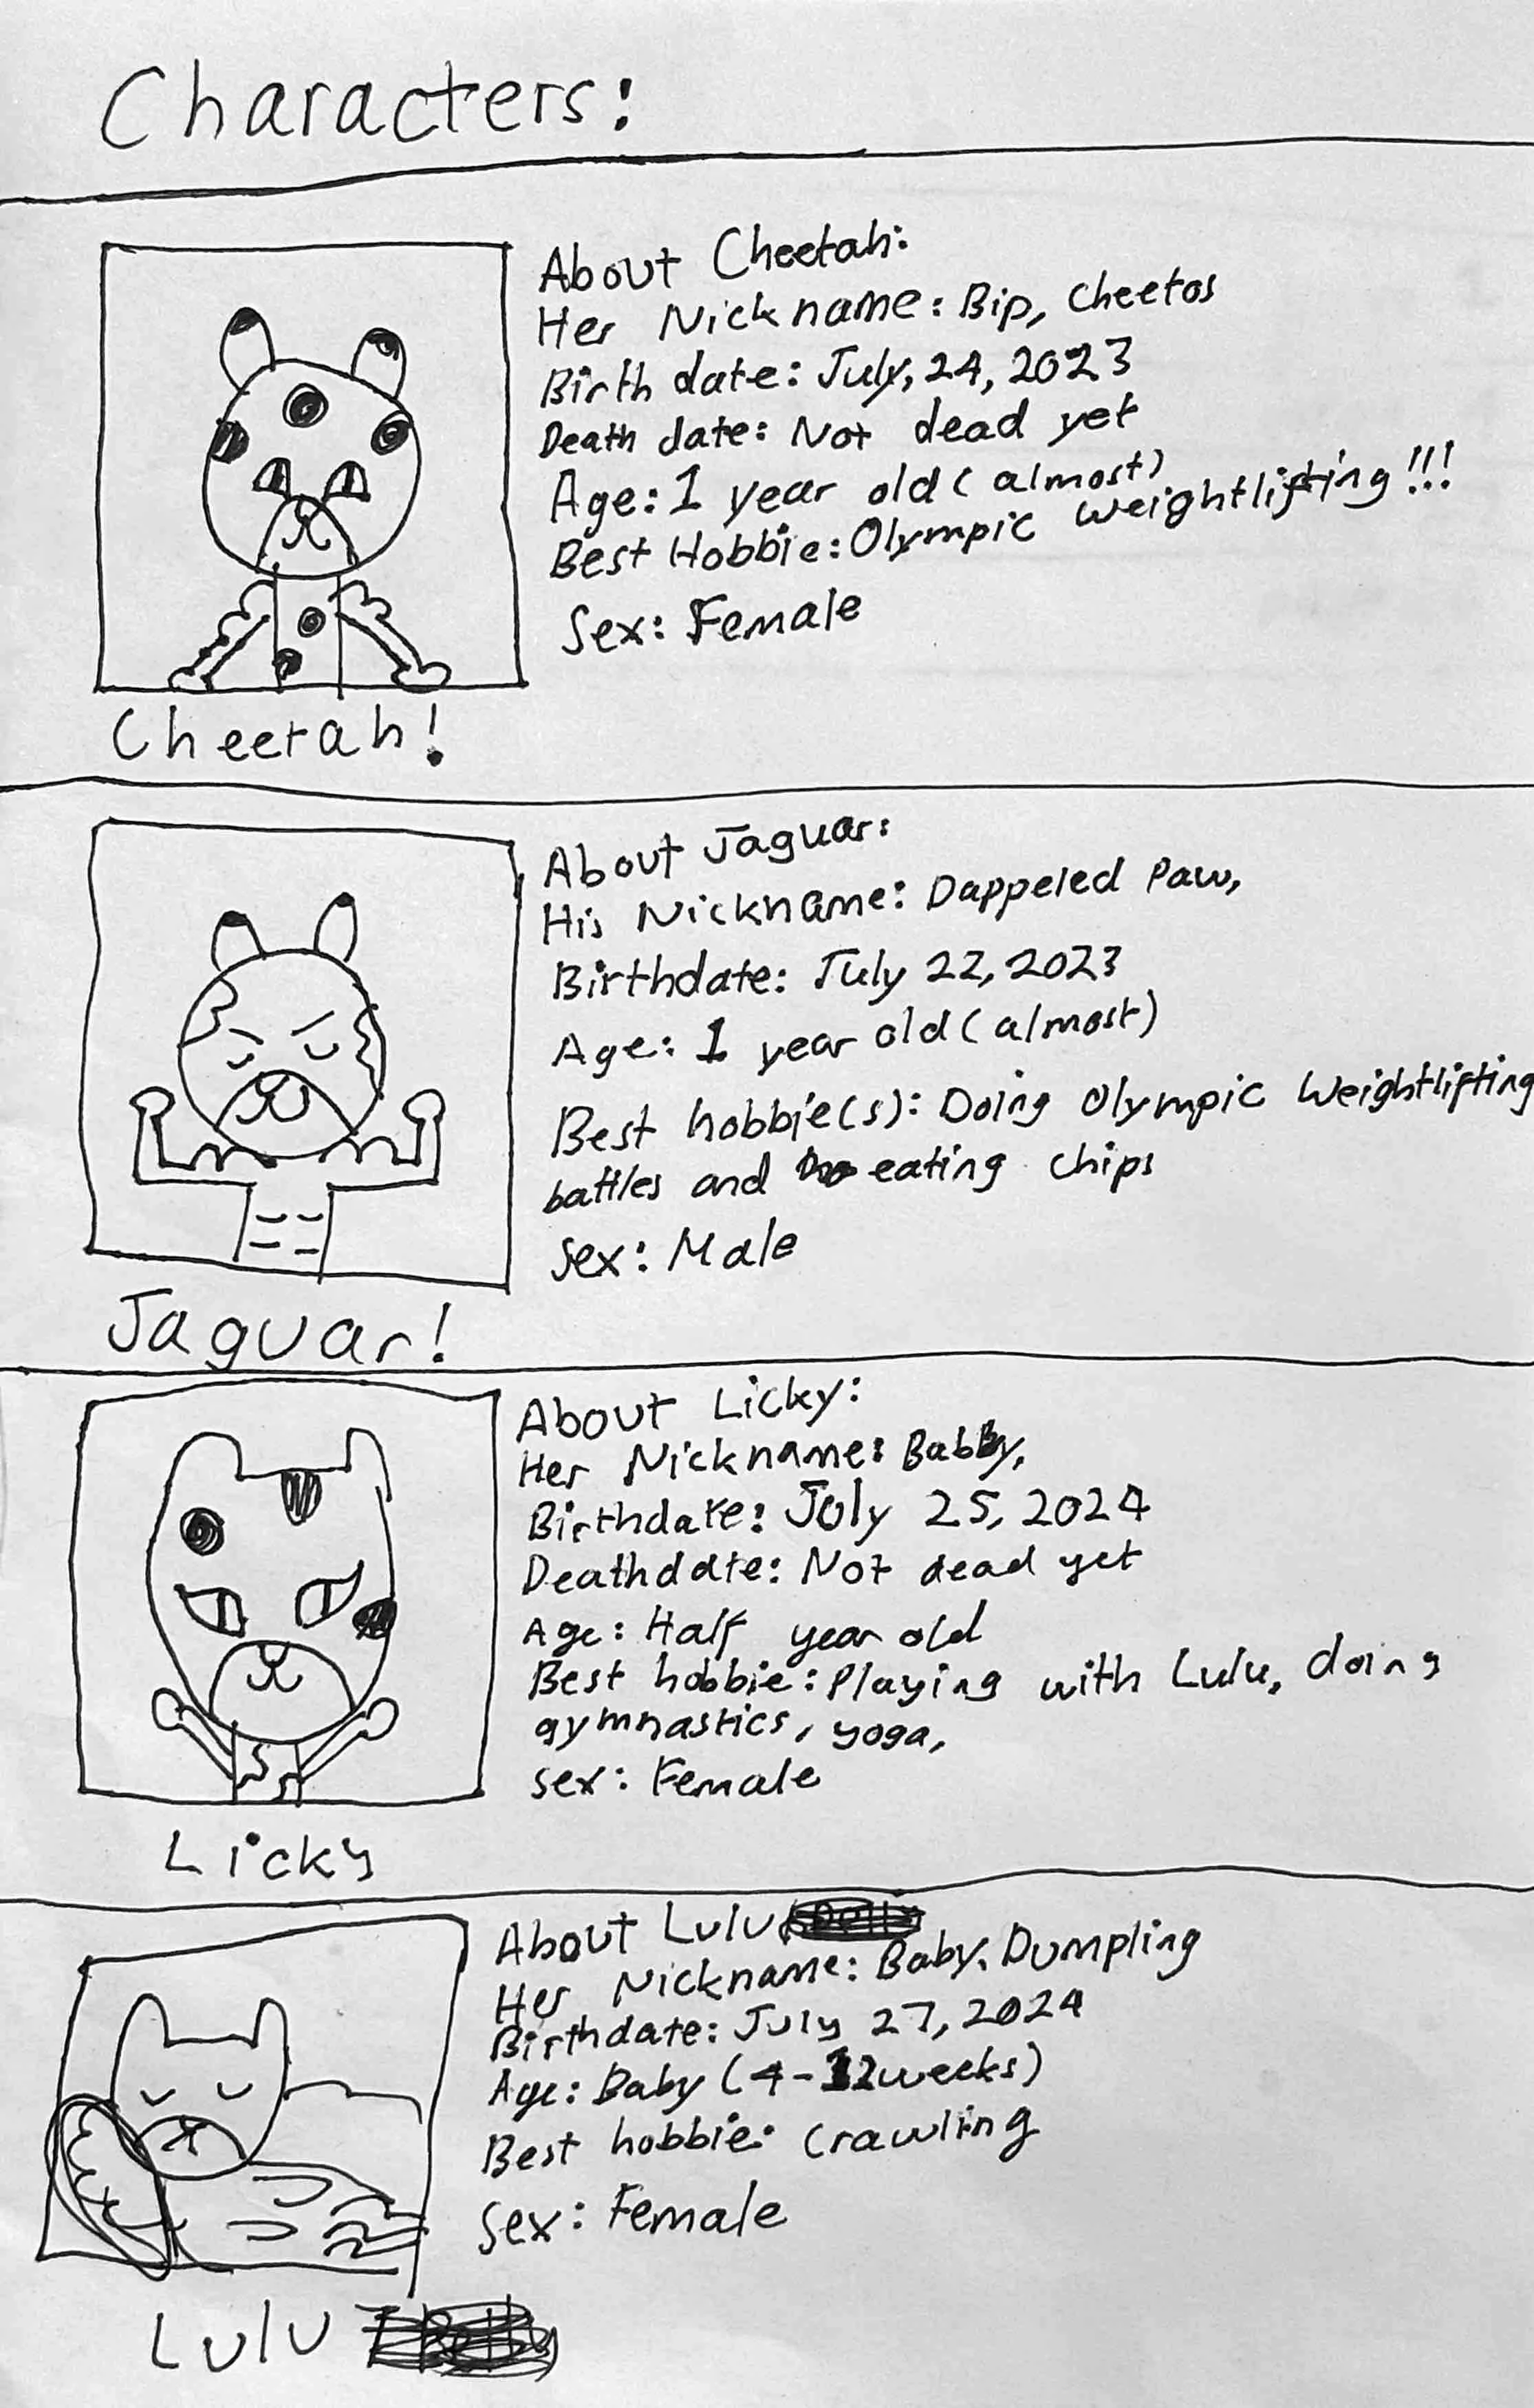 Characters:
About Cheetah:
Her Nickname: Bip, Cheetos
Birth date: July, 24, 2023
Death date: Not dead yet
Age: 1 year old (almost)
Best Hobbie: Olympic Weightlifting!!!
Sex: Female
Cheetah!
About Jaguar:
His Nickname: Dappeled Paw,
Birthdate: July 22, 2023
Age: 1 year old (almost)
Best hobbie(s): Doing Olympic Weightlifting
battles and eating chips
Sex: Male
Jaguar!
About Licky:
Her Nickname: Babby,
Birthdate: July 25, 2024
Deathdate: Not dead yet
Age: Half year old
Best hobbie: Playing with Lulu, doing
gymnastics, yoga,
Sex: Female
Licky
About Lulu
Her Nickname: Baby, Dumpling
Birthdate: July 27, 2024
Age: Baby (4-12weeks)
Best hobbie: Crawling
Sex: Female
Lulu